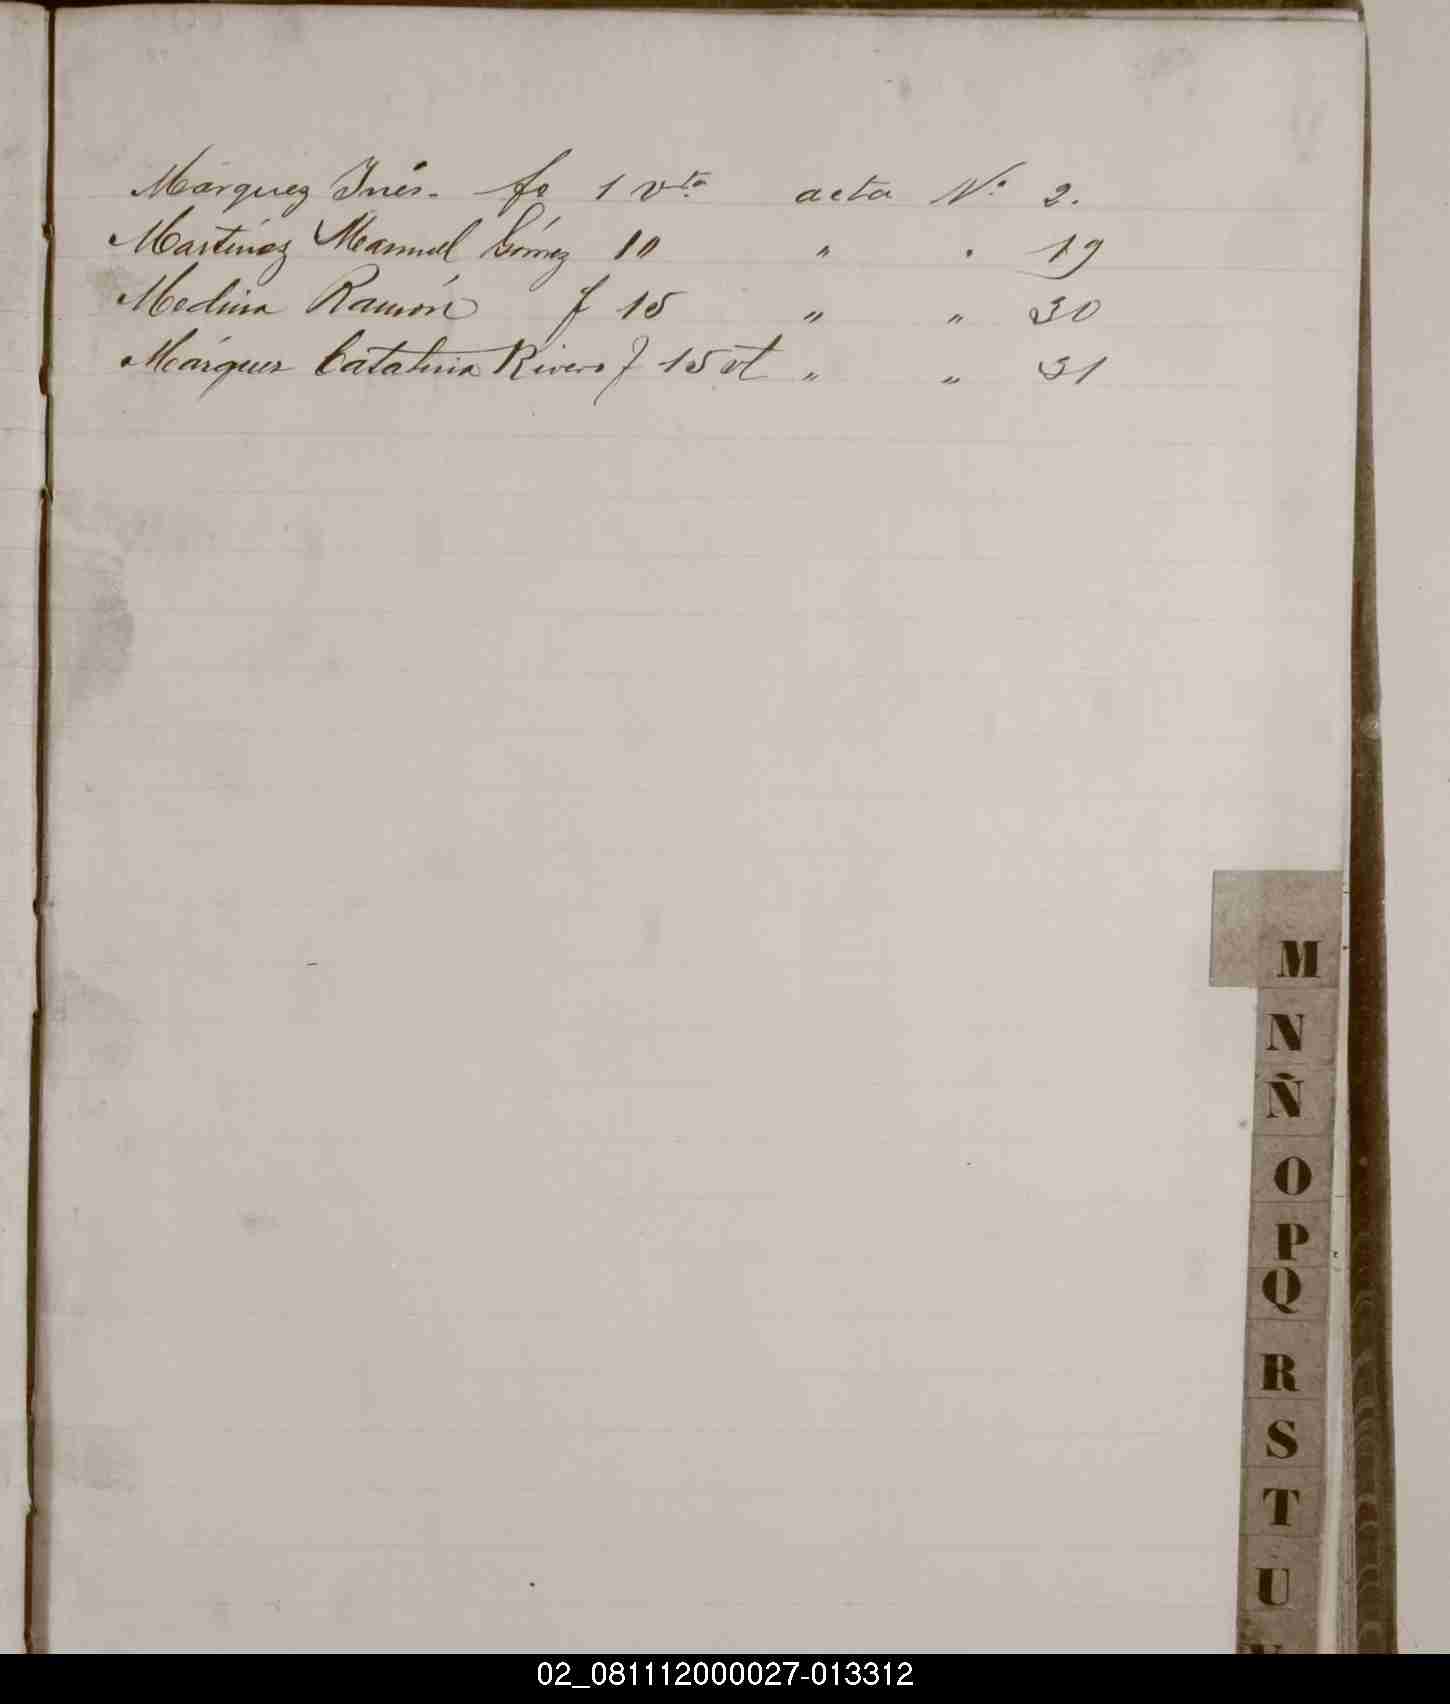 Márquez Inés. fo 1 vta acta No 2.
Martínez Manuel Gómez 10 " " 19
Medina Ramón f 15 " " 30
Márquez Catalina Rivero f 15 vt " " 31
M
N
Ñ
O
P
Q
R
S
T
U
02_081112000027-013312